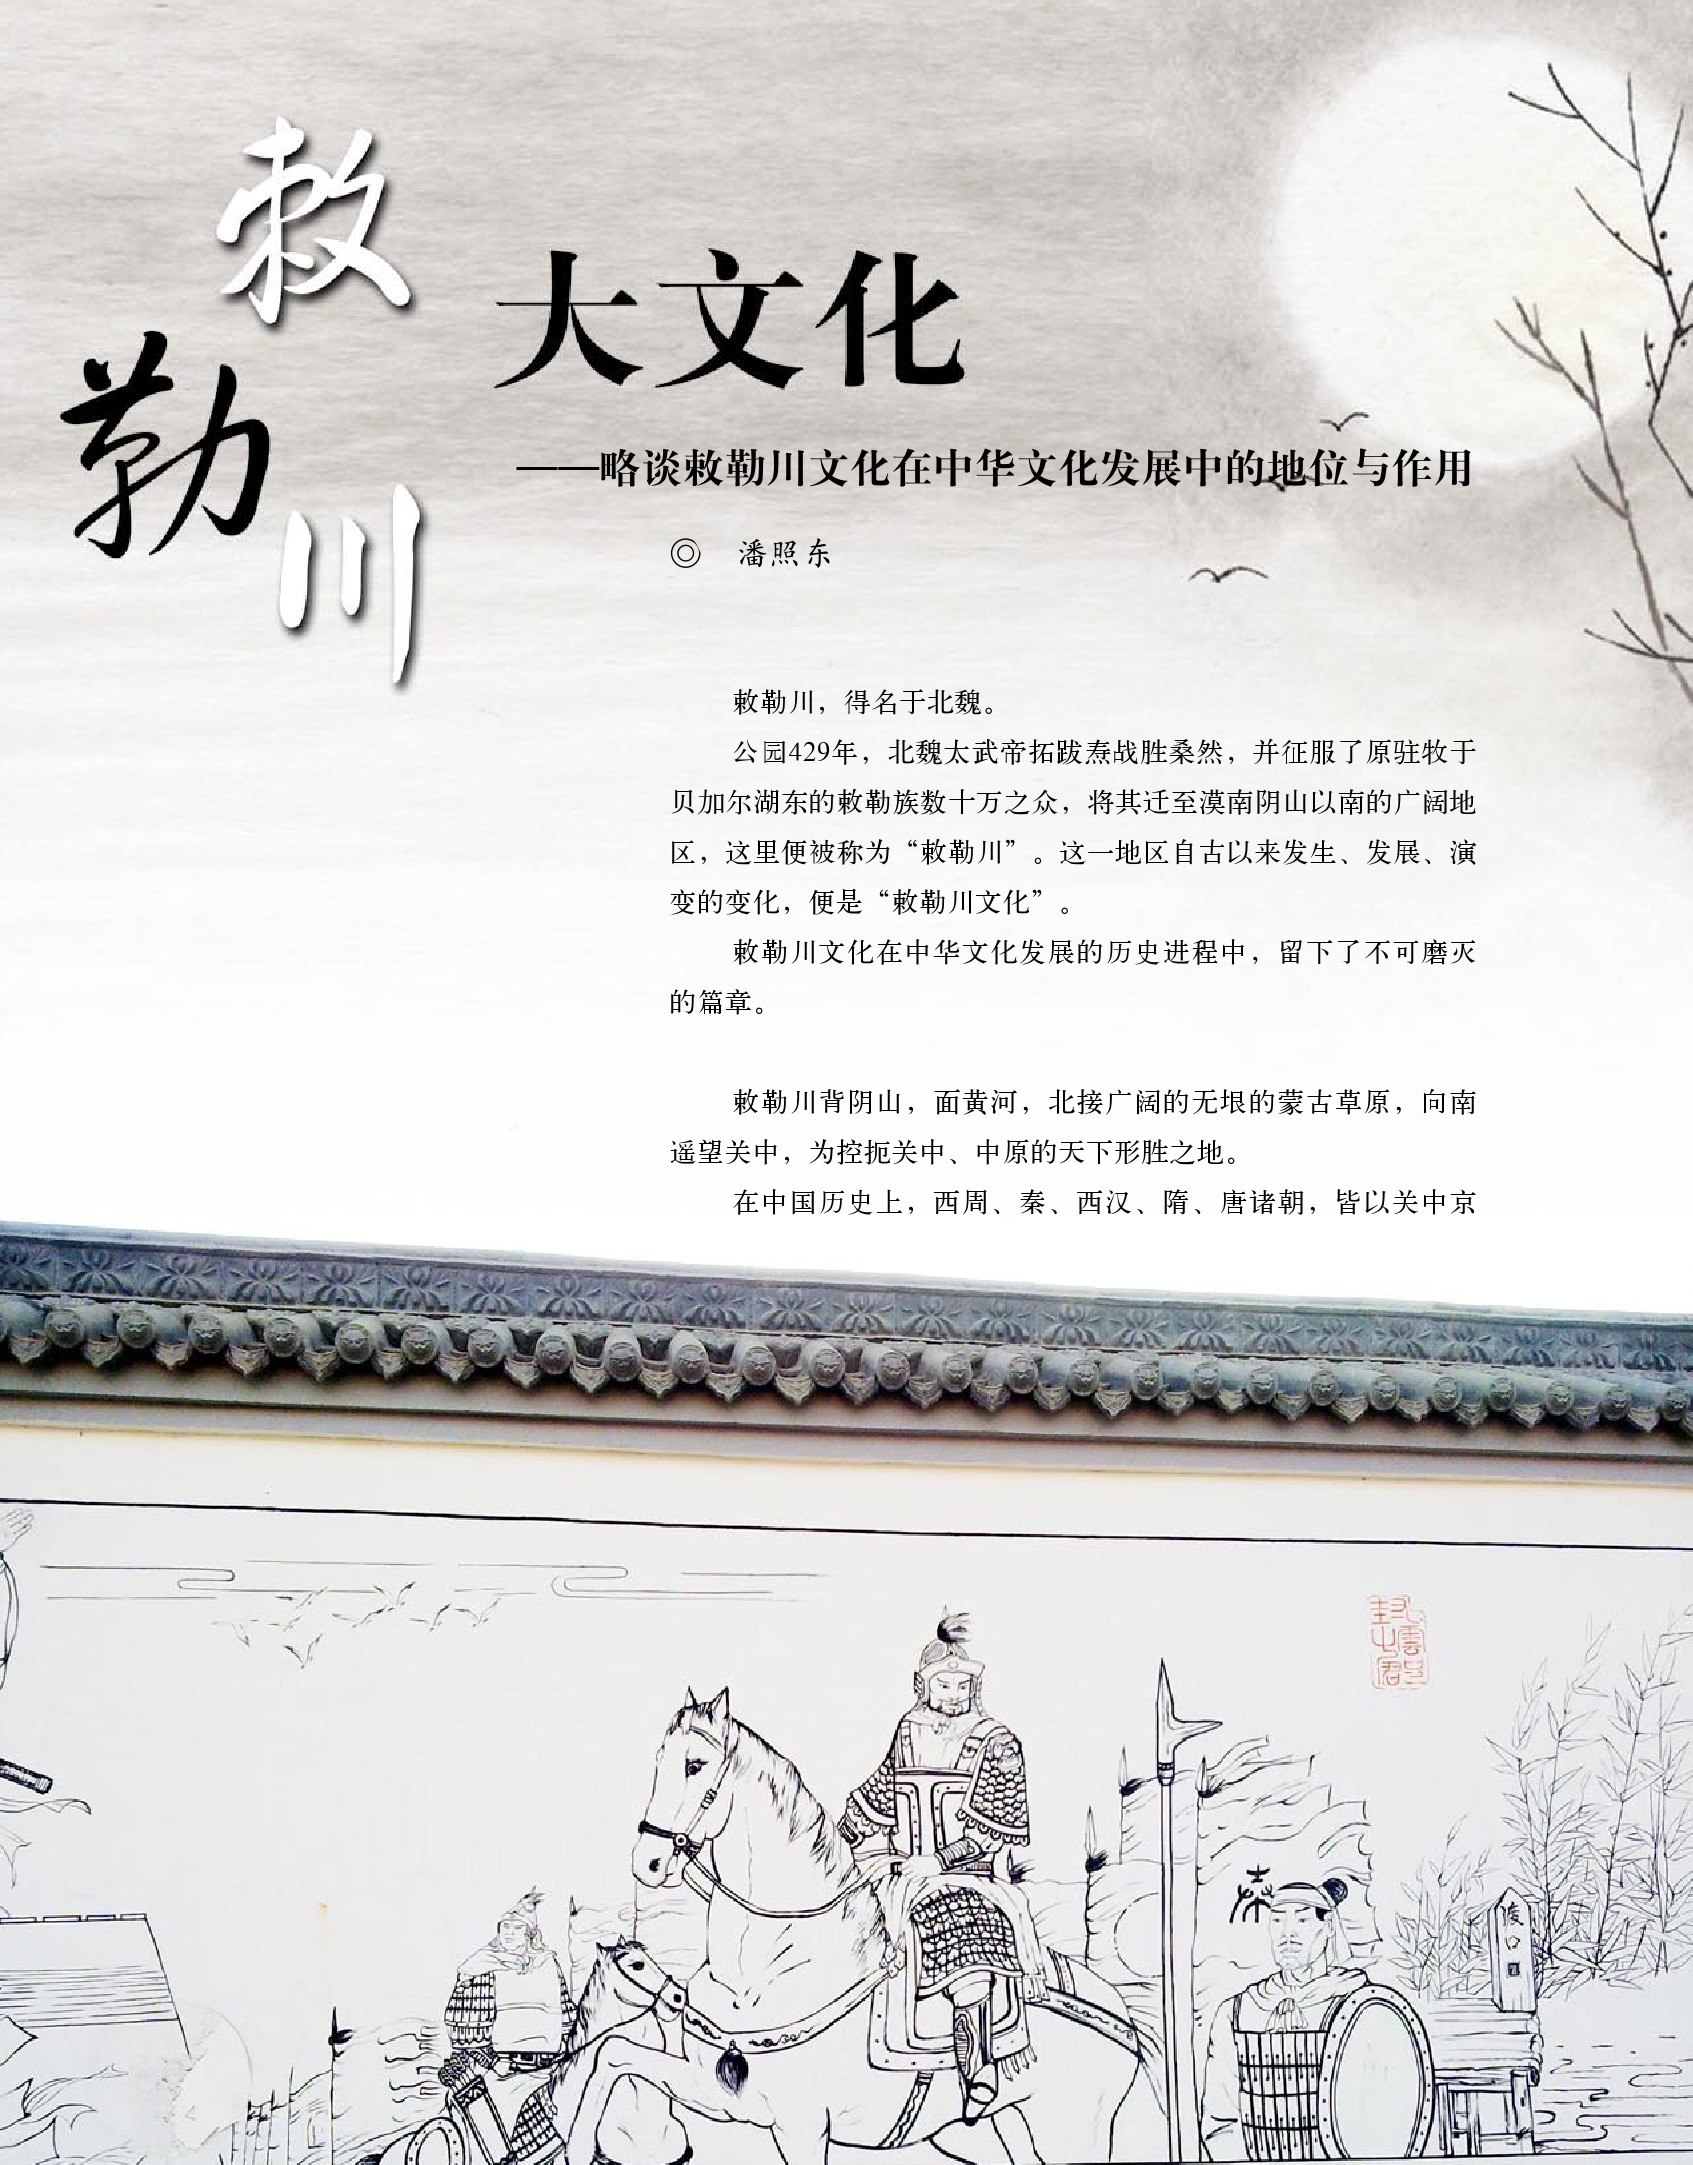 敕勒川
大文化
——略谈敕勒川文化在中华文化发展中的地位与作用
◎ 潘照东
敕勒川，得名于北魏。
公园429年，北魏太武帝拓跋焘战胜桑然，并征服了原驻牧于
贝加尔湖东的敕勒族数十万之众，将其迁至漠南阴山以南的广阔地
区，这里便被称为“敕勒川”。这一地区自古以来发生、发展、演
变的变化，便是“敕勒川文化”。
敕勒川文化在中华文化发展的历史进程中，留下了不可磨灭
的篇章。
敕勒川背阴山，面黄河，北接广阔的无垠的蒙古草原，向南
遥望关中，为控扼关中、中原的天下形胜之地。
在中国历史上，西周、秦、西汉、隋、唐诸朝，皆以关中京